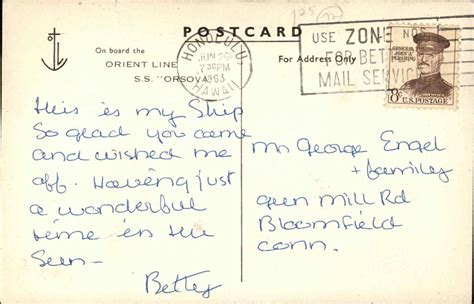 POSTCARD
On board the
ORIENT LINE
S.S. "ORSOVA"
For Address Only
HONOLULU
JUN
730PM
1963
HAWAII
USE ZONE NOS.
FOR BET
MAIL SERVIC
GENERAL
JOHN J.
PERSHING
8¢ U.S. POSTAGE
This is my Ship
So glad you came
and wished me
off. Haveing just
a wonderful
time in the
Sun -
Betty
Mr George Engel
+ family
Mill Rd
Bloomfield
Conn.